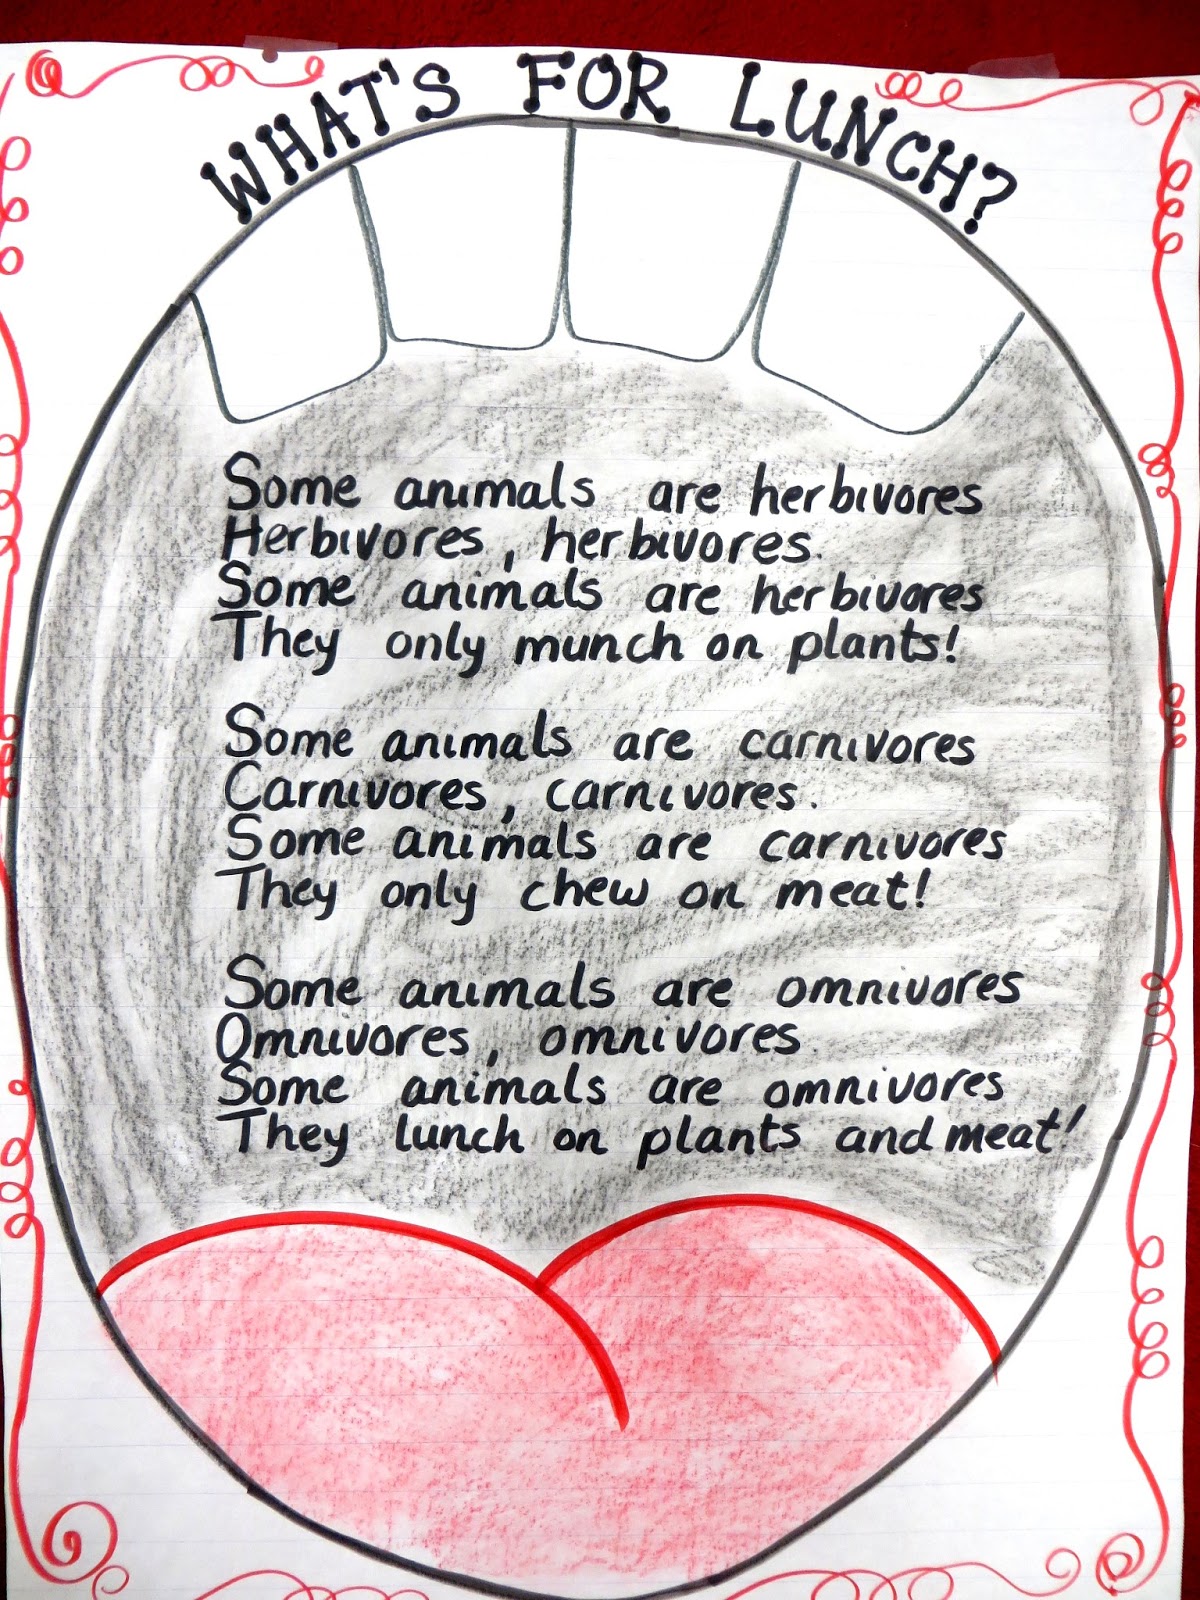 WHAT'S FOR LUNCH?
Some animals are herbivores
Herbivores, herbivores.
Some animals are herbivores
They only munch on plants!
Some animals are carnivores
Carnivores, carnivores.
Some animals are carnivores
They only chew on meat!
Some animals are omnivores
Omnivores, omnivores.
Some animals are omnivores
They lunch on plants and meat!